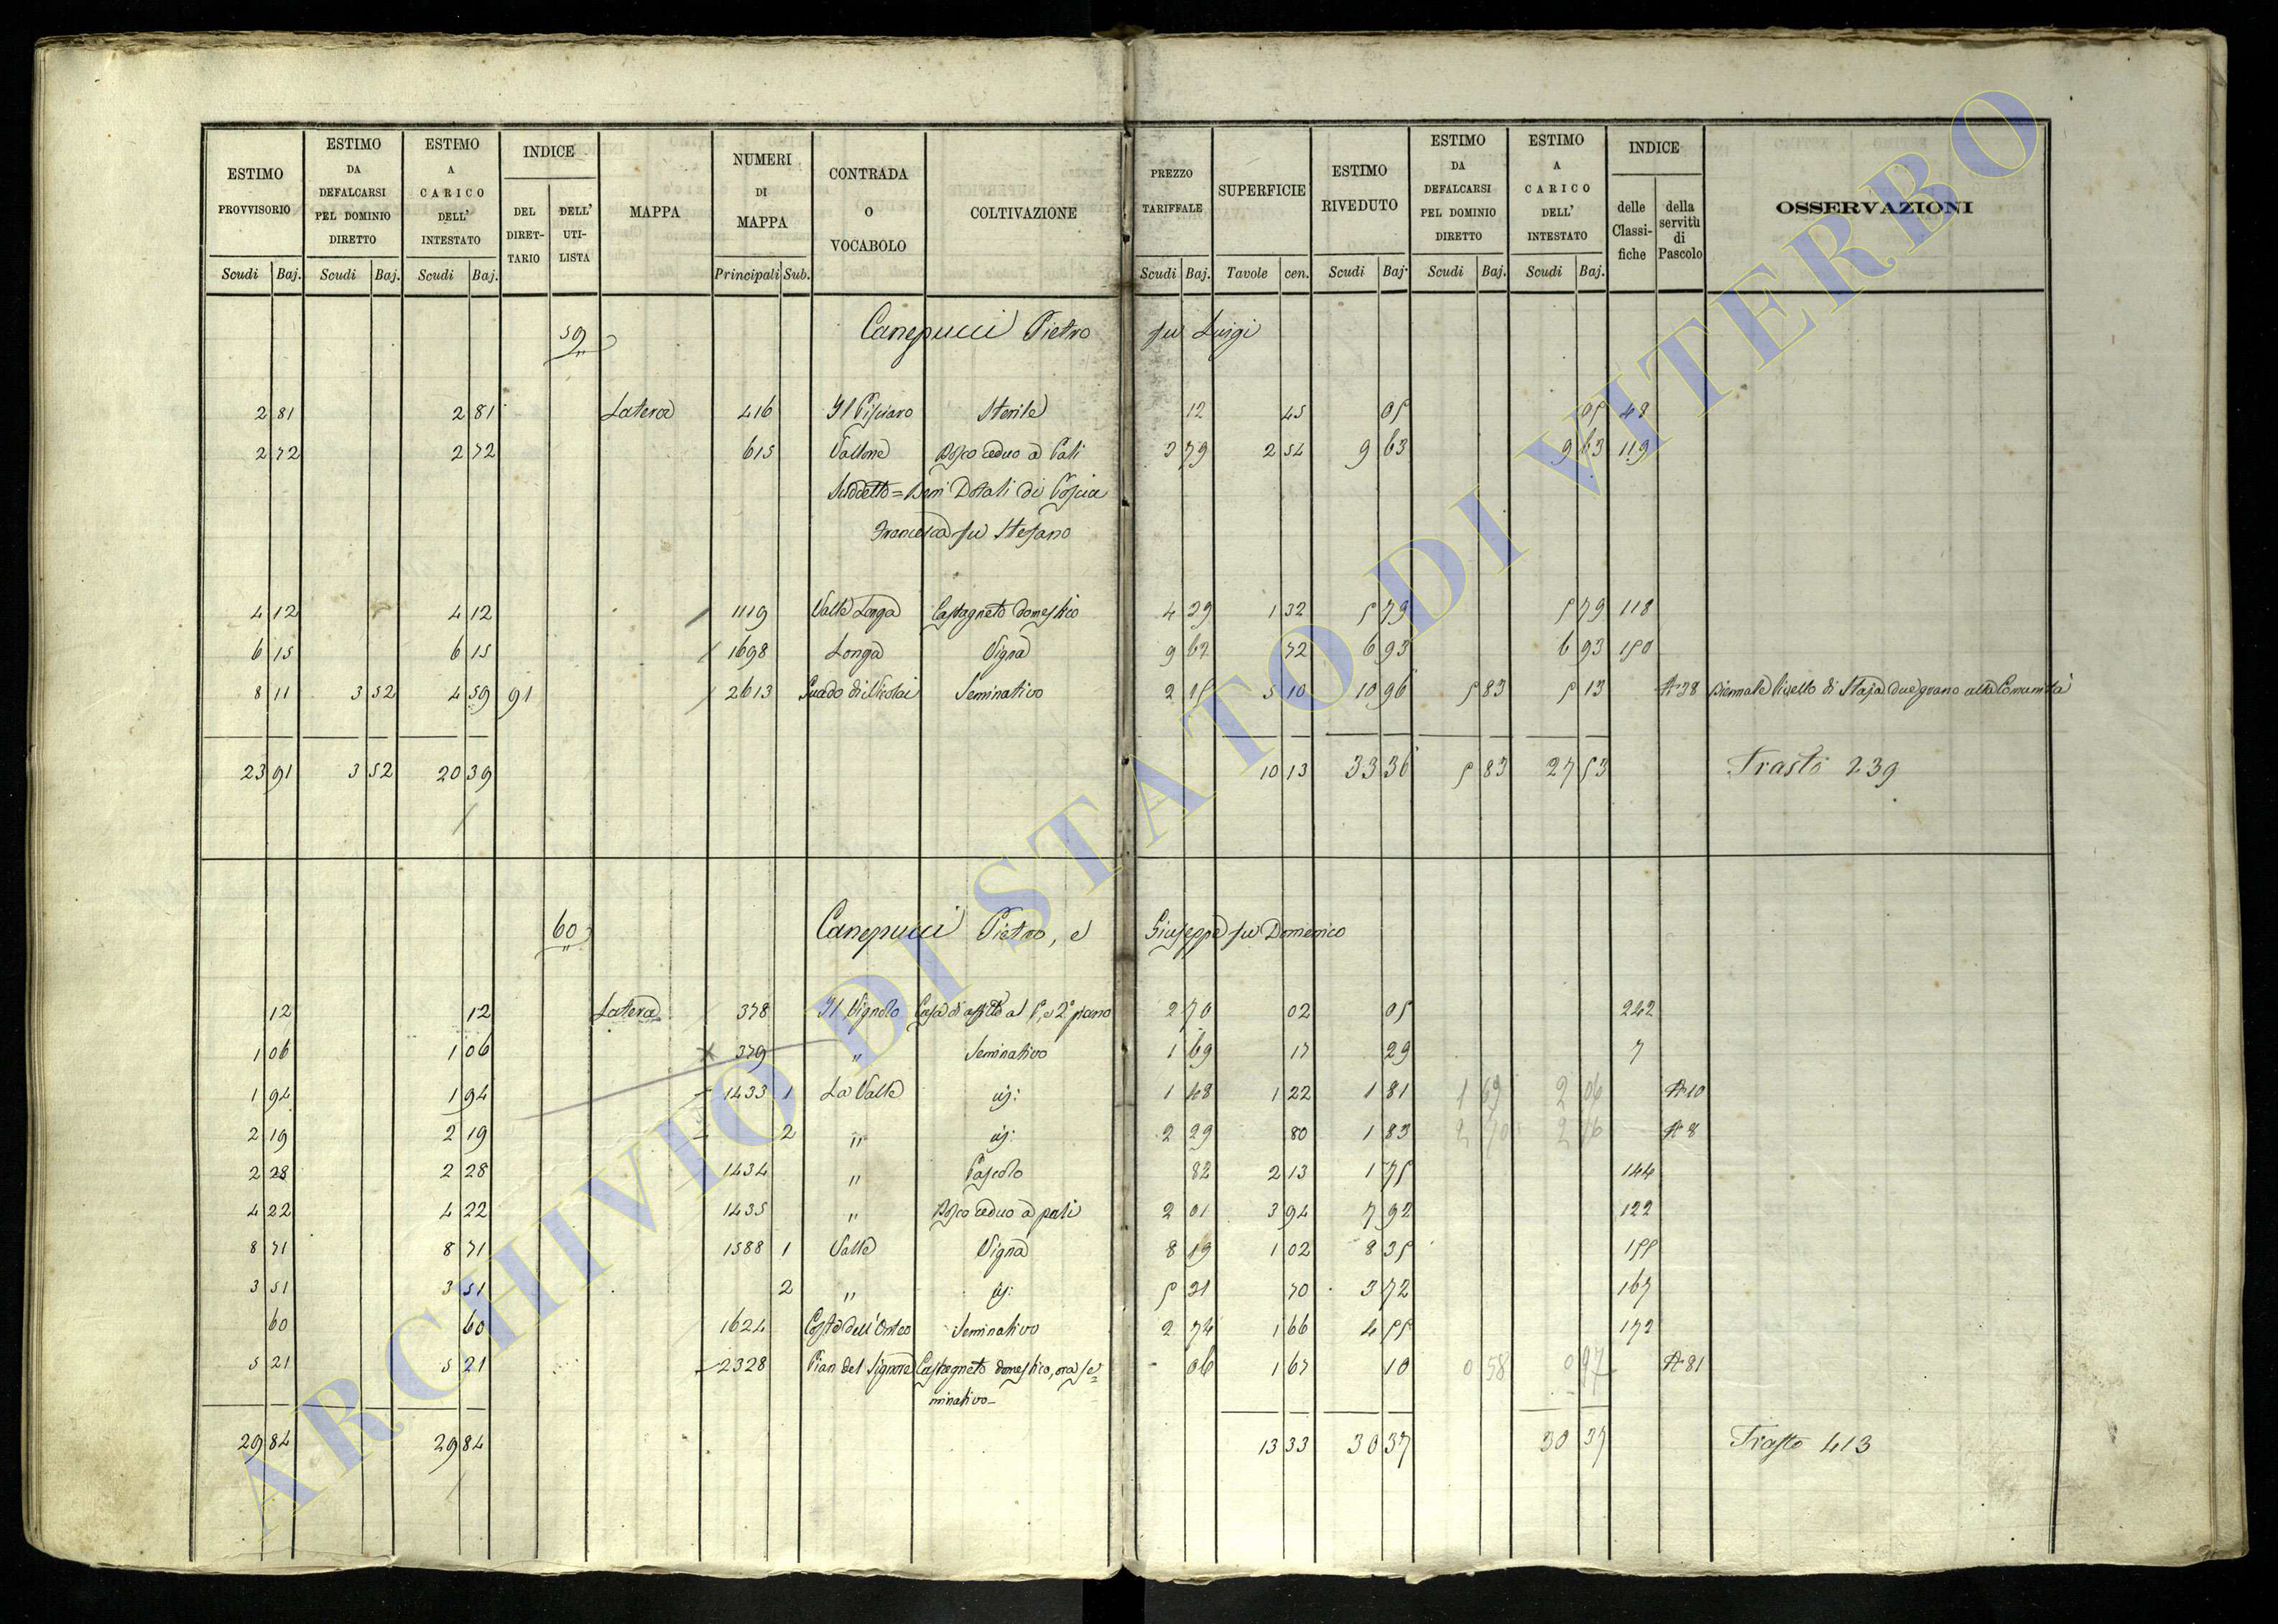 ESTIMO PROVVISORIO | ESTIMO DA DEFALCARSI PEL DOMINIO DIRETTO | ESTIMO A CARICO DELL' INTESTATO | INDICE DEL DIRETTARIO | DELL' UTILISTA | MAPPA | NUMERI DI MAPPA | CONTRADA O VOCABOLO | COLTIVAZIONE | PREZZO TARIFFALE | SUPERFICIE | ESTIMO RIVEDUTO | ESTIMO DA DEFALCARSI PEL DOMINIO DIRETTO | ESTIMO A CARICO DELL' INTESTATO | INDICE delle Classifiche | della servitù di Pascolo | OSSERVAZIONI
Scudi Baj. | Scudi Baj. | Scudi Baj. | Principali Sub. | Scudi Baj. | Tavole cen. | Scudi Baj. | Scudi Baj. | Scudi Baj.
59 Canepucci Pietro fu Luigi
2 81 | 2 81 | Latera | 416 | Il Pisciaro | Sterile | 12 | 45 | 05 | 05 | 48
2 72 | 2 72 | 615 | Vallone | Bosco ceduo a Pali | 3 79 | 2 54 | 9 63 | 9 63 | 119
Suddetto = Beni Dotali di Poscia
Francesca fu Stefano
4 12 | 4 12 | 1119 | Valle Longa | Castagneto domestico | 4 29 | 1 32 | 5 79 | 5 79 | 118
6 15 | 6 15 | 1698 | Longa | Vigna | 9 62 | 72 | 6 93 | 6 93 | 150
8 11 | 3 52 | 4 59 | 91 | 2613 | Guado di Nicolai | Seminativo | 2 15 | 5 10 | 10 96 | 5 83 | 5 13 | A 38 | Biennale livello di Staja due grano alla Comunità
23 91 | 3 52 | 20 39 | 10 13 | 33 36 | 5 83 | 27 53 | Trasto 239
60 Canepucci Pietro, e Giuseppe fu Domenico
12 | 12 | Latera | 378 | Il Vignolo | Casa di affitto al 1°, e 2° piano | 2 70 | 02 | 05 | 242
1 06 | 1 06 | 379 | " | Seminativo | 1 69 | 17 | 29 | 7
1 94 | 1 94 | 1433 | 1 | La Valle | id: | 1 48 | 1 22 | 1 81 | 1 69 | 2 06 | A 10
2 19 | 2 19 | 2 | " | id: | 2 29 | 80 | 1 83 | 2 70 | 2 16 | A 8
2 28 | 2 28 | 1434 | " | Pascolo | 82 | 2 13 | 1 75 | 144
4 22 | 4 22 | 1435 | " | Bosco ceduo a pali | 2 01 | 3 94 | 7 92 | 122
8 71 | 8 71 | 1588 | 1 | Valle | Vigna | 8 19 | 1 02 | 8 35 | 155
3 51 | 3 51 | 2 | " | id: | 5 31 | 70 | 3 72 | 167
60 | 60 | 1624 | Costa dell' | Seminativo | 2 74 | 1 66 | 4 55 | 172
5 21 | 5 21 | 2328 | Pian del Signore | Castagneto domestico, ora se= | 06 | 1 67 | 10 | 0 58 | 0 97 | A 81
minativo
29 84 | 29 84 | 13 33 | 30 37 | 30 37 | Trasto 413
ARCHIVIO DI STATO DI VITERBO